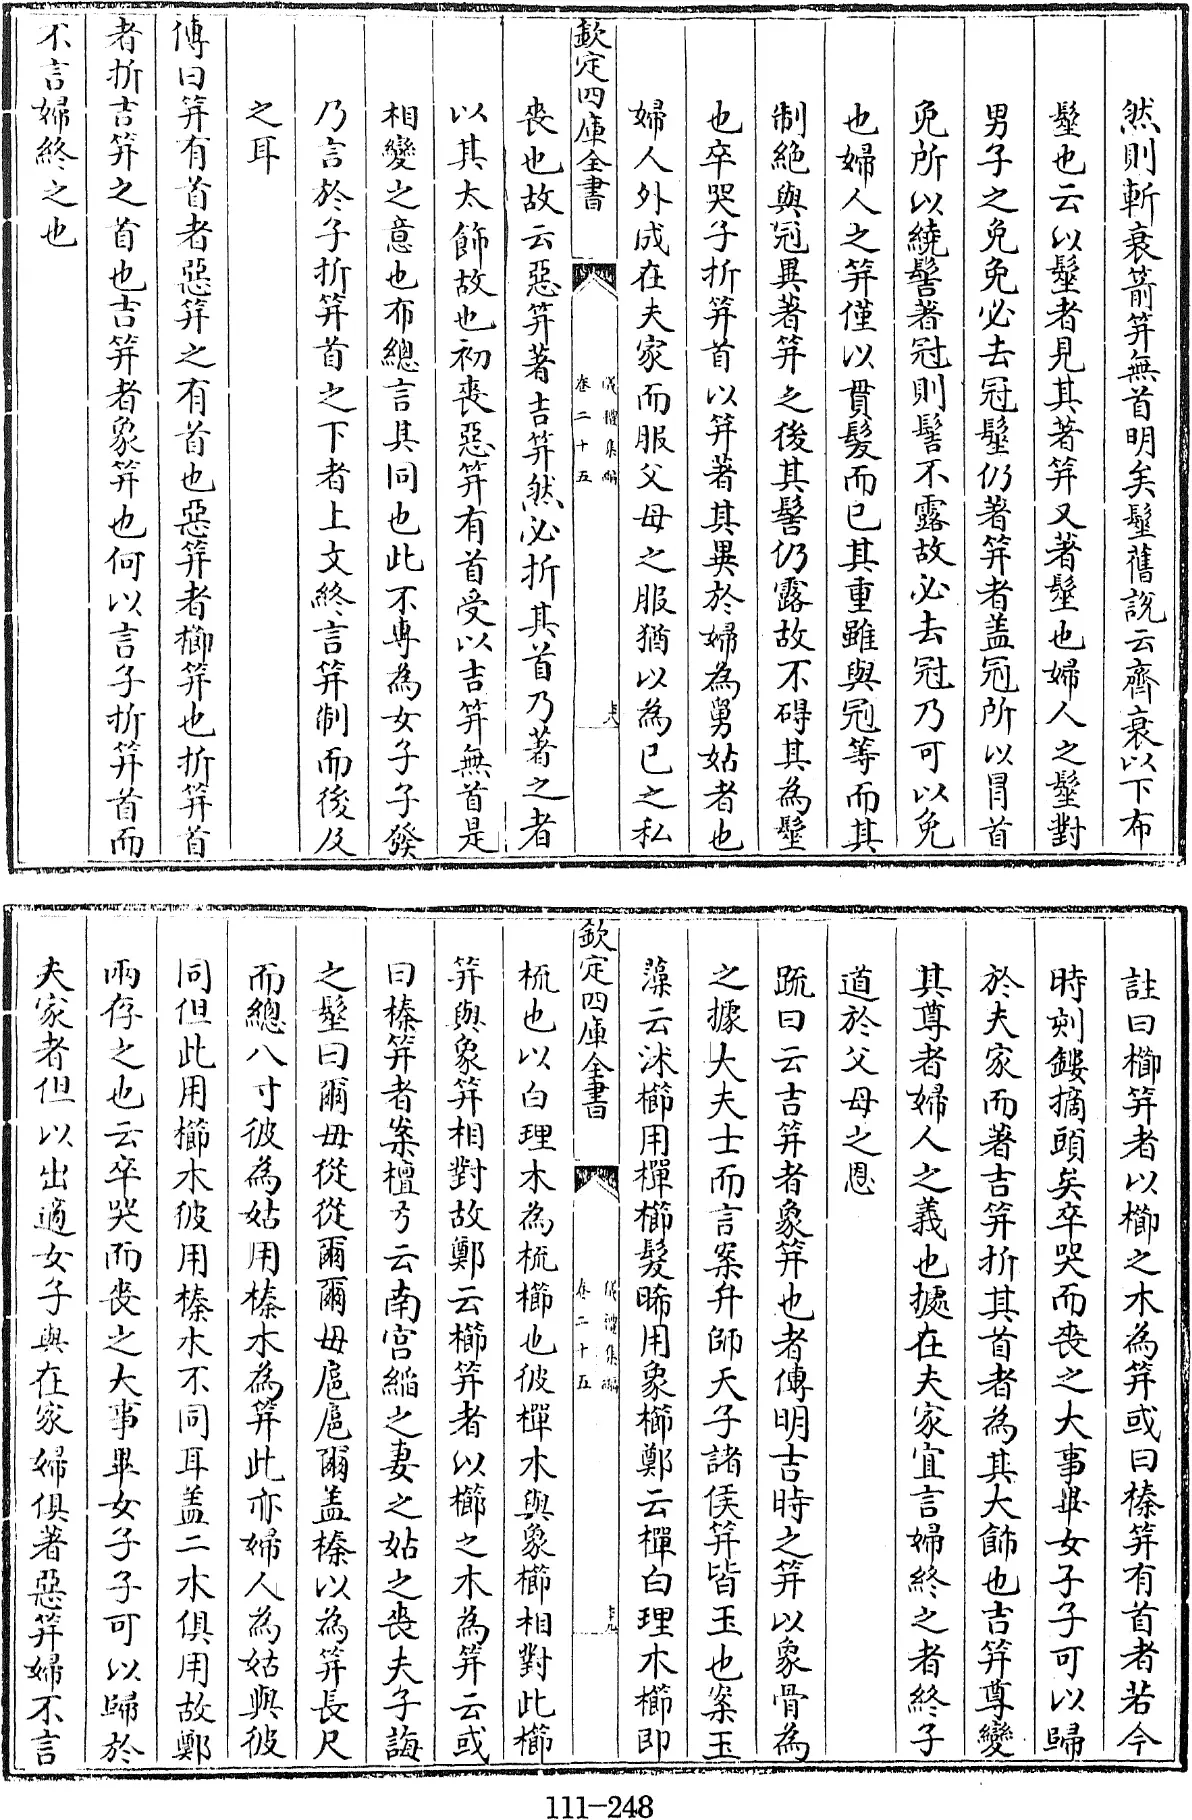 然則斬衰箭筓無首明矣髽舊說云齊衰以下布
髽也云以髽者見其著筓又著髽也婦人之髽對
男子之免免必去冠髽仍著筓者蓋冠所以冒首
免所以繞髻著冠則髻不露故必去冠乃可以免
也婦人之筓僅以貫髮而已其重雖與冠等而其
制絶與冠異著筓之後其髻仍露故不碍其為髽
也卒哭子折筓首以筓著其異於婦為舅姑者也
婦人外成在夫家而服父母之服猶以為已之私
欽定四庫全書
儀禮集編
卷二十五
丧也故云惡筓著吉筓然必折其首乃著之者
以其太飾故也初丧惡筓有首受以吉筓無首是
相變之意也布總言其同也此不專為女子子發
乃言於子折筓首之下者上文終言筓制而後及
之耳
傳曰筓有首者惡筓之有首也惡筓者櫛筓也折筓首
者折吉筓之首也吉筓者象筓也何以言子折筓首而
不言婦終之也
註曰櫛筓者以櫛之木為筓或曰榛筓有首者若今
時刻鏤摘頭矣卒哭而丧之大事畢女子子可以歸
於夫家而著吉筓折其首者為其大飾也吉筓尊變
其尊者婦人之義也據在夫家宜言婦終之者終子
道於父母之恩
疏曰云吉筓者象筓也者傳明吉時之筓以象骨為
之據大夫士而言案弁師天子諸侯筓皆玉也案玉
藻云沐櫛用樿櫛髮晞用象櫛鄭云樿白理木櫛即
欽定四庫全書
儀禮集編
卷二十五
梳也以白理木為梳櫛也彼樿木與象櫛相對此櫛
筓與象筓相對故鄭云櫛筓者以櫛之木為筓云或
曰榛筓者案檀弓云南宫縚之妻之姑之丧夫子誨
之髽曰爾毋從從爾爾毋扈扈爾蓋榛以為筓長尺
而總八寸彼為姑用榛木為筓此亦婦人為姑與彼
同但此用櫛木彼用榛木不同耳蓋二木俱用故鄭
兩存之也云卒哭而丧之大事畢女子子可以歸於
夫家者但以出適女子與在家婦俱著惡筓婦不言
111-248